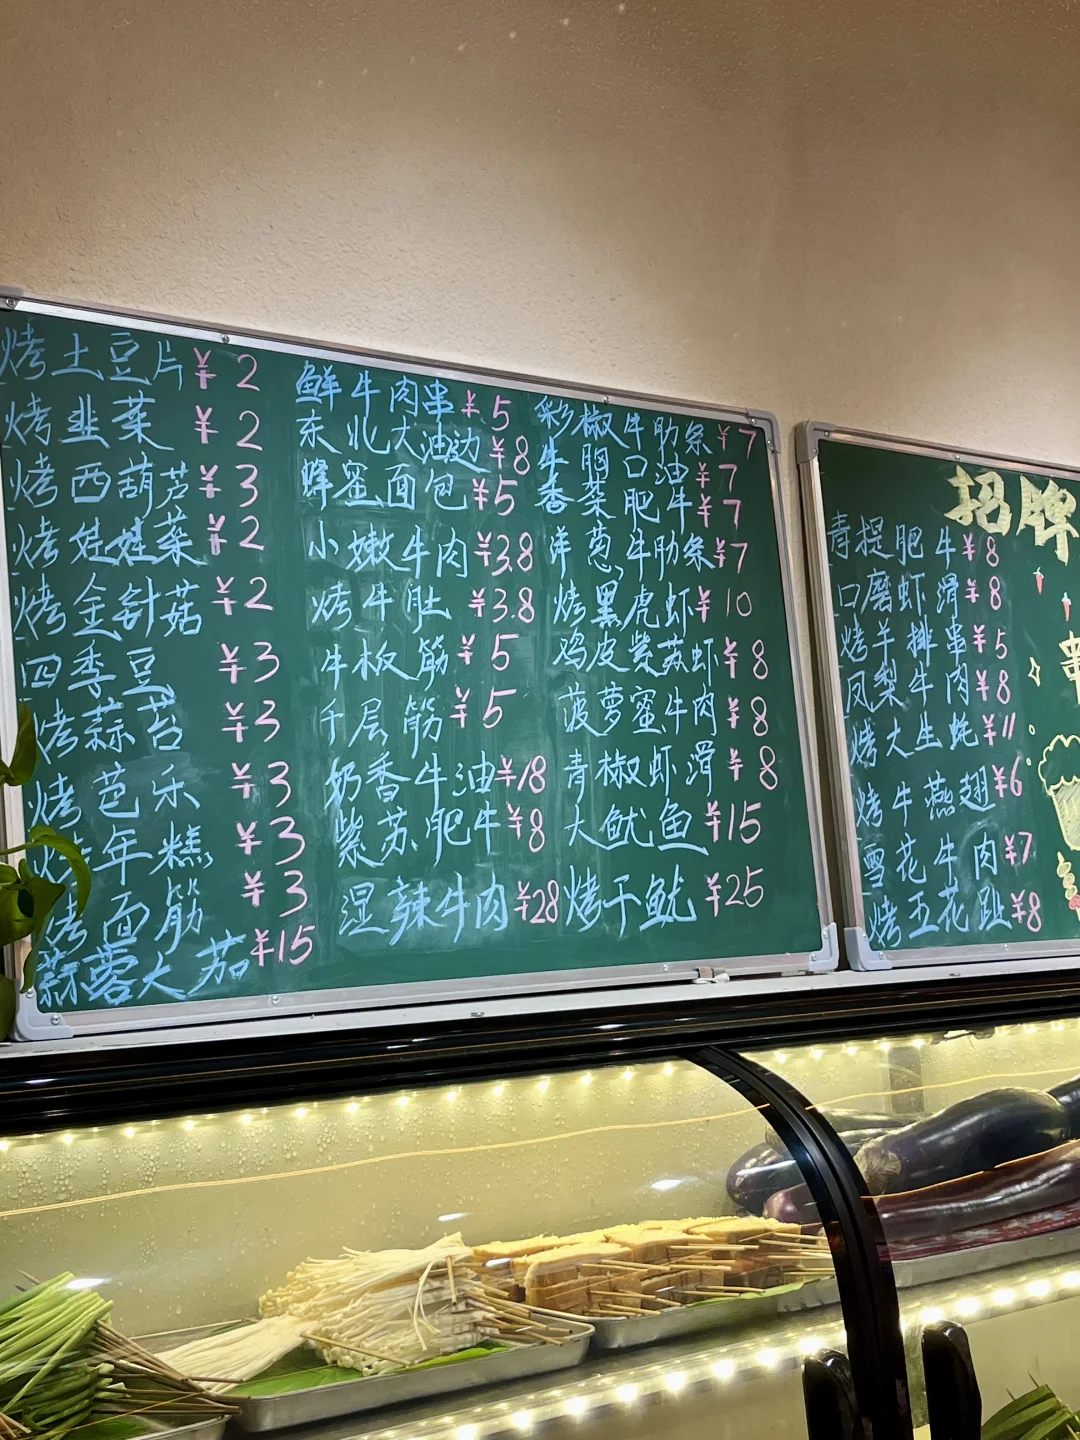 烤土豆片¥2
烤韭菜¥2
烤西葫芦¥3
烤娃娃菜¥2
烤金针菇¥2
四季豆¥3
烤蒜苔¥3
烤芭乐¥3
烤年糕¥3
烤面筋¥3
蒜蓉大茄¥15
鲜牛肉串¥5
东北大油边¥8
蜂蜜面包¥5
小嫩牛肉¥3.8
烤牛肚¥3.8
牛板筋¥5
千层筋¥5
奶香牛油¥18
紫苏肥牛¥8
湿辣牛肉¥28
彩椒牛肋条¥7
牛胸口油¥7
香菜肥牛¥7
洋葱牛肋条¥7
烤黑虎虾¥10
鸡皮紫苏虾¥8
菠萝蜜牛肉¥8
青椒虾滑¥8
大鱿鱼¥15
烤干鱿¥25
招牌
串
青提肥牛¥8
口磨虾滑¥8
烤羊排串¥5
凤梨牛肉¥8
烤大生蚝¥11
烤牛燕翅¥6
雪花牛肉¥7
烤五花趾¥8